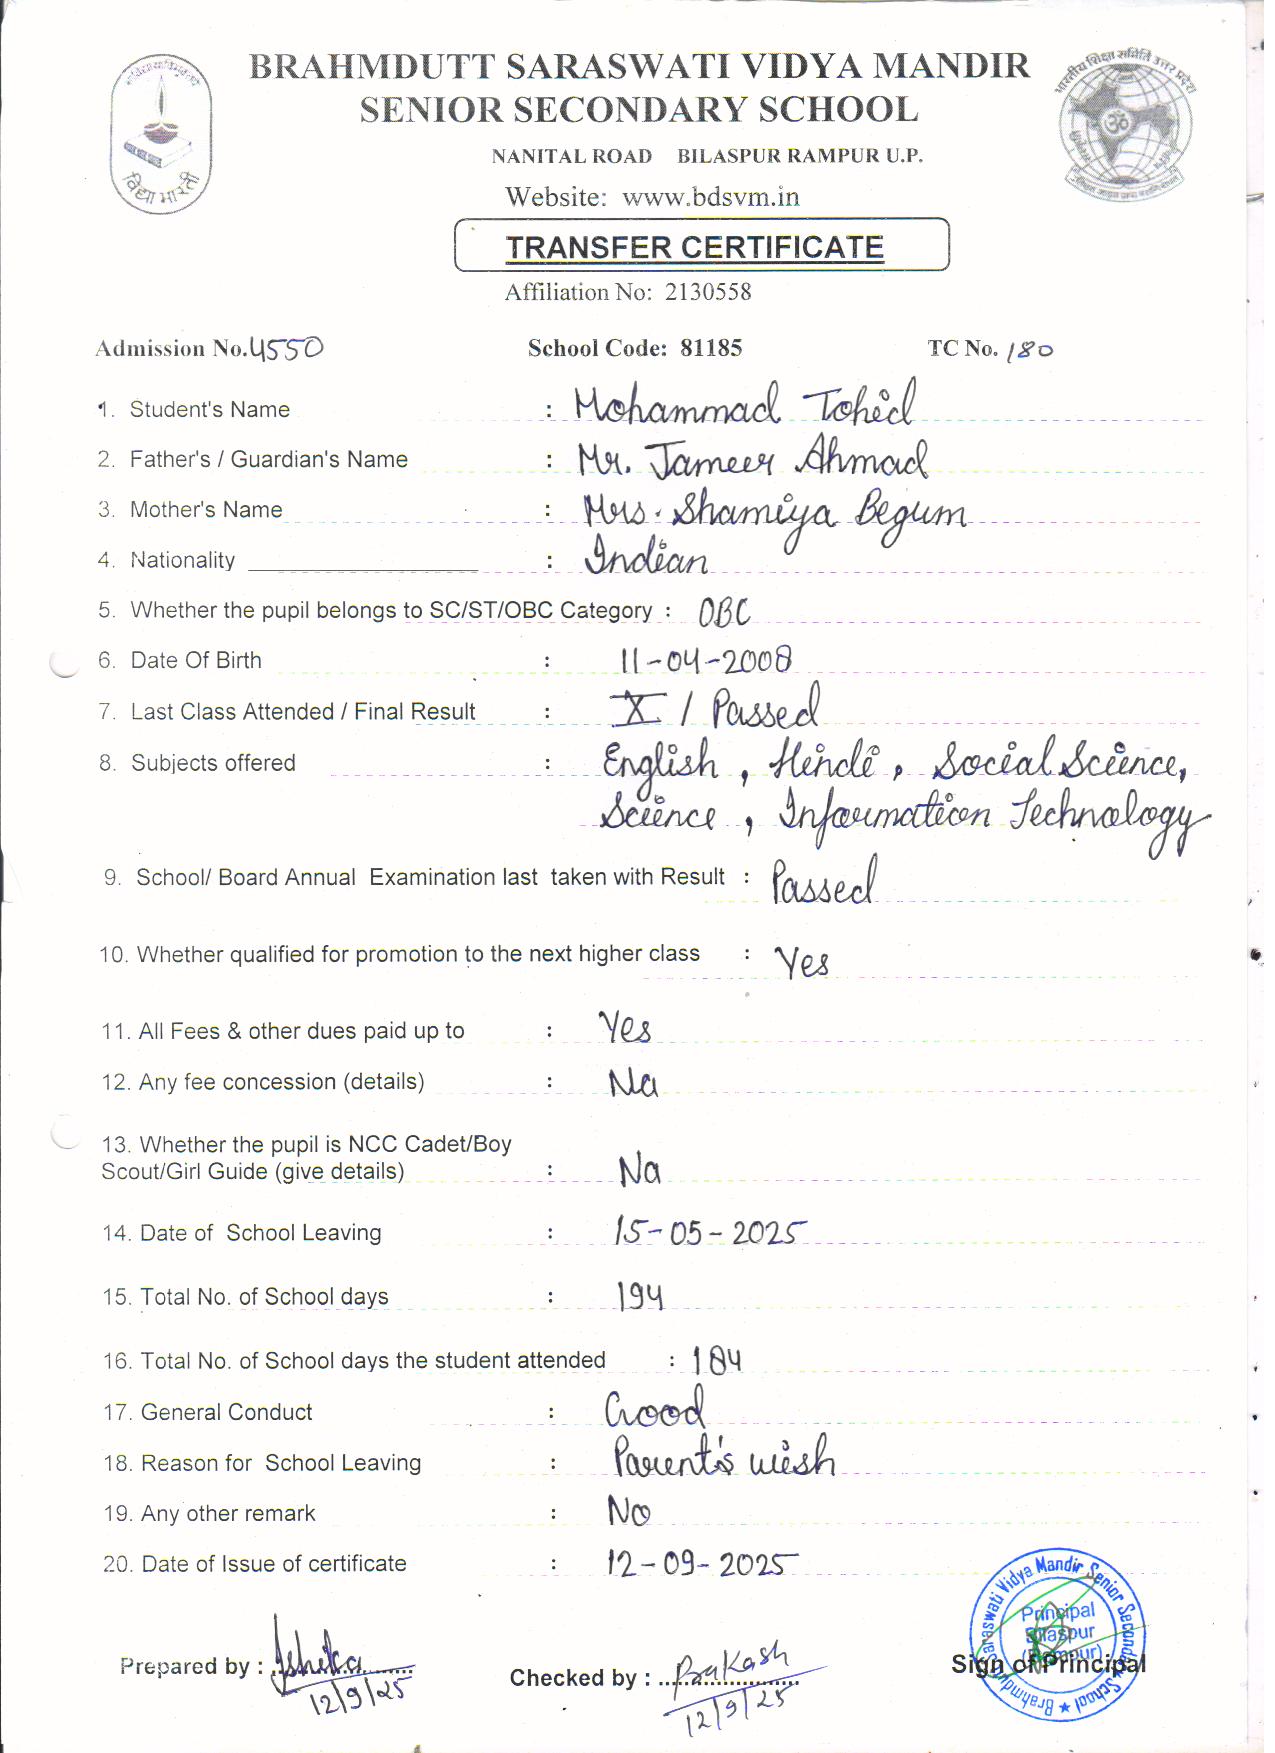 BRAHMDUTT SARASWATI VIDYA MANDIR
SENIOR SECONDARY SCHOOL
NANITAL ROAD BILASPUR RAMPUR U.P.
Website: www.bdsvm.in
विद्या भारती
भारतीय शिक्षा समिति उत्तर प्रदेश
TRANSFER CERTIFICATE
Affiliation No: 2130558
Admission No. 4550 School Code: 81185 TC No. 180
1. Student's Name : Mohammad Tohid
2. Father's / Guardian's Name : Mr. Jameer Ahmad
3. Mother's Name : Mrs. Shamiya Begum
4. Nationality : Indian
5. Whether the pupil belongs to SC/ST/OBC Category : OBC
6. Date Of Birth : 11-04-2008
7. Last Class Attended / Final Result : X / Passed
8. Subjects offered : English, Hindi, Social Science,
Science, Information Technology
9. School/ Board Annual Examination last taken with Result : Passed
10. Whether qualified for promotion to the next higher class : Yes
11. All Fees & other dues paid up to : Yes
12. Any fee concession (details) : Na
13. Whether the pupil is NCC Cadet/Boy
Scout/Girl Guide (give details) : Na
14. Date of School Leaving : 15-05-2025
15. Total No. of School days : 194
16. Total No. of School days the student attended : 184
17. General Conduct : Good
18. Reason for School Leaving : Parent's wish
19. Any other remark : No
20. Date of Issue of certificate : 12-09-2025
Brahmdutt Saraswati Vidya Mandir Senior Secondary School
Principal
Bilaspur
(Rampur)
Prepared by : Ishika
12/9/25
Checked by : Prakash
12/9/25
Sign of Principal